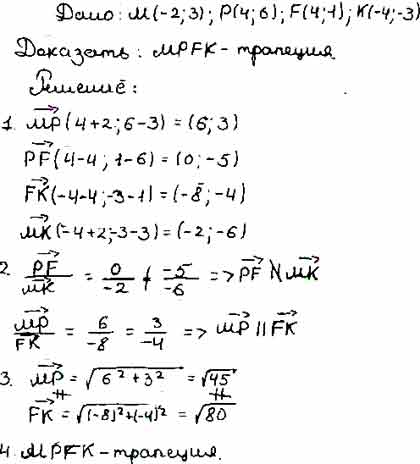 Дано: M(-2;3); P(4;6); F(4;1); K(-4;-3)
Доказать: MPFK - трапеция.
Решение:
1. MP(4+2;6-3)=(6;3)
PF(4-4;1-6)=(0;-5)
FK(-4-4;-3-1)=(-8;-4)
MK(-4+2;-3-3)=(-2;-6)
2. PF/MK = 0/-2 ≠ -5/-6 => PF ∦ MK
MP/FK = 6/-8 = 3/-4 => MP || FK
3. MP = √6²+3² = √45
≠ ≠
FK = √(-8)²+(-4)² = √80
4. MPFK - трапеция.